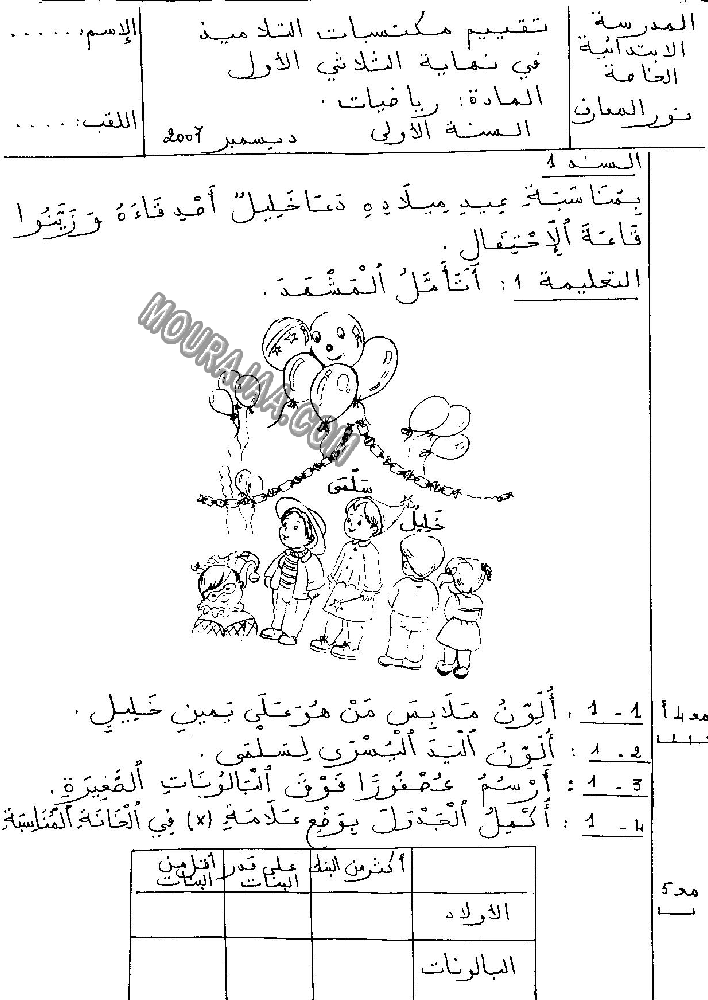 المدرسة
الابتدائية
الخاصة
نور المعارف
تقييم مكتسبات التلاميذ
في نهاية الثلاثي الأول
المادة: رياضيات.
السنة الأولى
ديسمبر 2007
الإسم: .....
اللقب: .....
السند 1
بِمُنَاسَبَةِ عِيدِ مِيلَادِهِ دَعَا خَلِيلٌ أَصْدِقَاءَهُ وَزَيَّنُوا
قَاعَةَ الْاِحْتِفَالِ.
التعليمة 1: أَتَأَمَّلُ الْمَشْهَدَ.
MOURAJAA.COM
سَلْمَى
خَلِيلٌ
1 - 1 : أُلَوِّنُ مَلَابِسَ مَنْ هُوَ عَلَى يَمِينِ خَلِيلٍ.
مع 4 أ
1 - 2 : أُلَوِّنُ الْيَدَ الْيُسْرَى لِسَلْمَى.
1 - 3 : أَرْسُمُ عُصْفُورًا فَوْقَ الْبَالُونَاتِ الصَّغِيرَةِ.
1 - 4 : أُكْمِلُ الْجَدْوَلَ بِوَضْعِ عَلَامَةِ (x) فِي الْخَانَةِ الْمُنَاسِبَةِ
مع 5
أكثر من البنات
على قدر البنات
أقل من البنات
الأولاد
البالونات